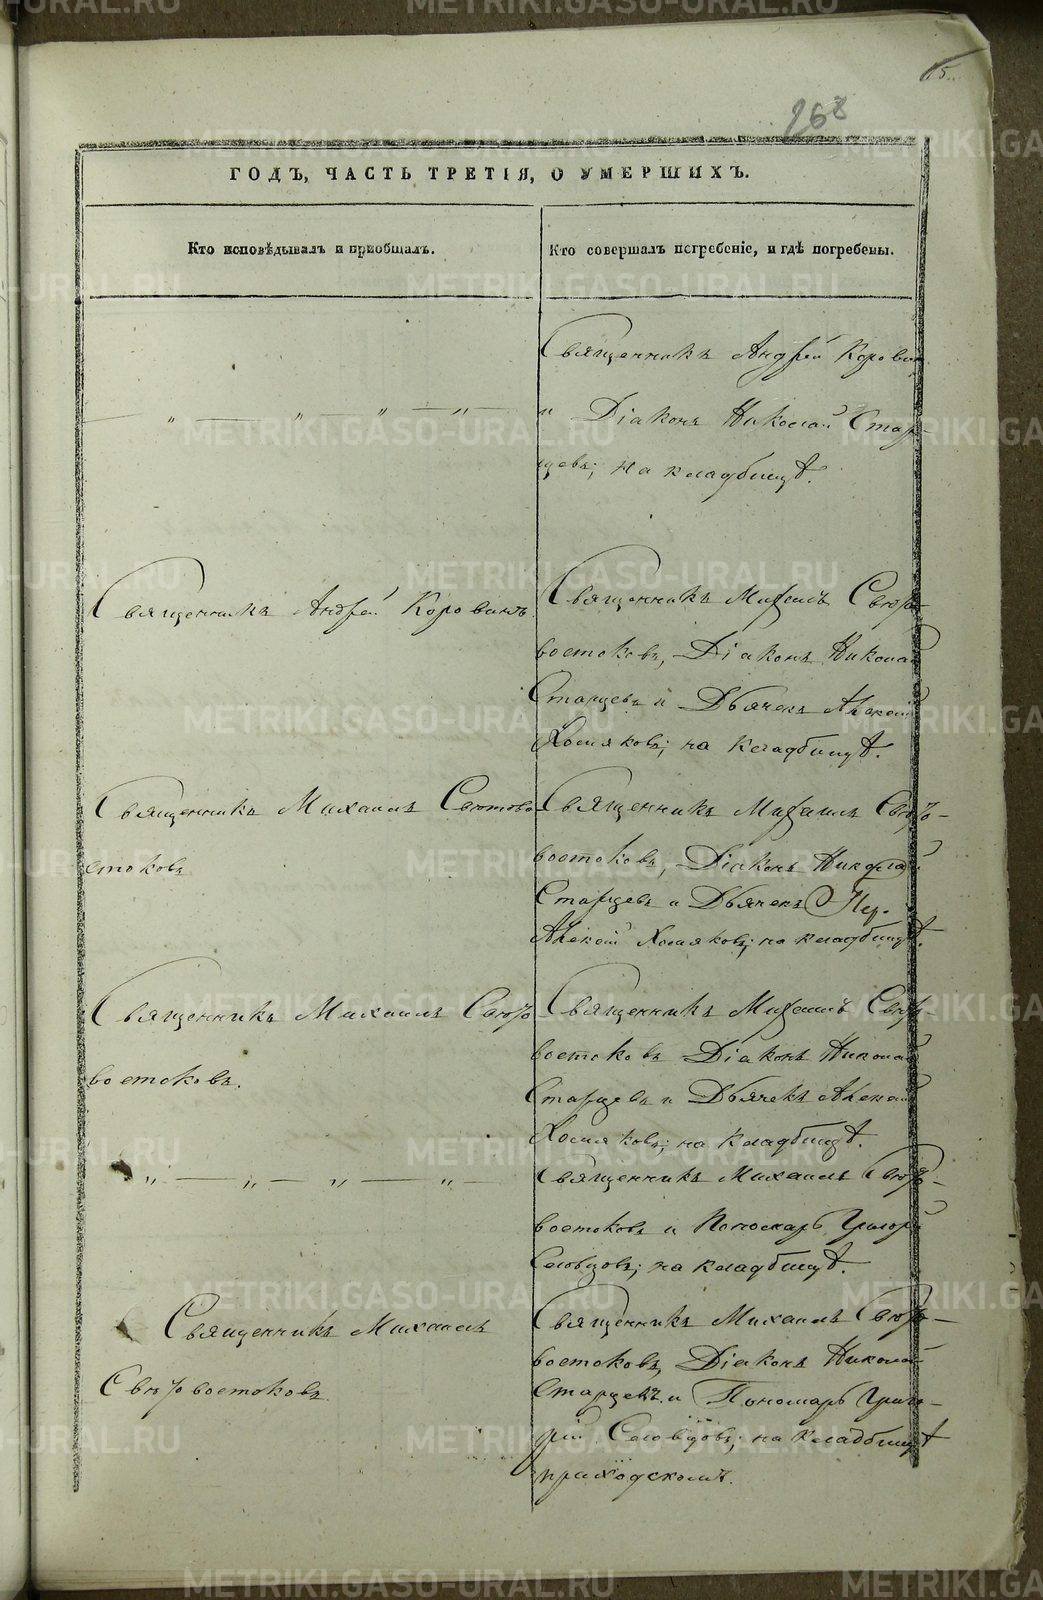 15
268
ГОДЪ, ЧАСТЬ ТРЕТІЯ, О УМЕРШИХЪ.
Кто исповѣдывалъ и пріобщалъ.
Кто совершалъ погребеніе, и гдѣ погребены.
Священникъ Андрей Коровин
— „ — „ — „ — „ — „ Діаконъ Николай Стар-
цевъ; на кладбищѣ.
Священникъ Андрей Коровинъ
Священникъ Михаилъ Свѣто-
востоковъ, Діаконъ Николай
Старцевъ и Дьячекъ Алексій
Хомяковъ; на кладбищѣ.
Священникъ Михаилъ Свѣтово
стоковъ
Священникъ Михаилъ Свѣто-
востоковъ, Діаконъ Николай
Старцевъ и Дьячекъ
Алексій Хомяковъ; на кладбищѣ.
Священникъ Михаилъ Свѣто
востоковъ.
Священникъ Михаилъ Свѣто-
востоковъ Діаконъ Николай
Старцевъ и Дьячекъ Алексій
Хомяковъ; на кладбищѣ.
„ — „ — „ — „ —
Священникъ Михаилъ Свѣто-
востоковъ и Пономарь Григорій
Словцовъ; на кладбищѣ.
Священникъ Михаилъ
Свѣтовостоковъ
Священникъ Михаилъ Свѣто-
востоковъ, Діаконъ Николай
Старцевъ и Пономарь Григо-
рій Словцовъ; на кладбищѣ
приходскомъ.
METRIKI.GASO-URAL.RU